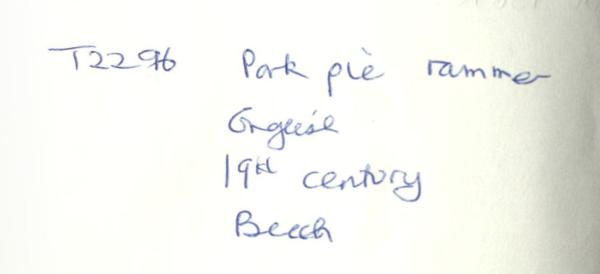 T2296 Pork pie rammer
English
19th century
Beech